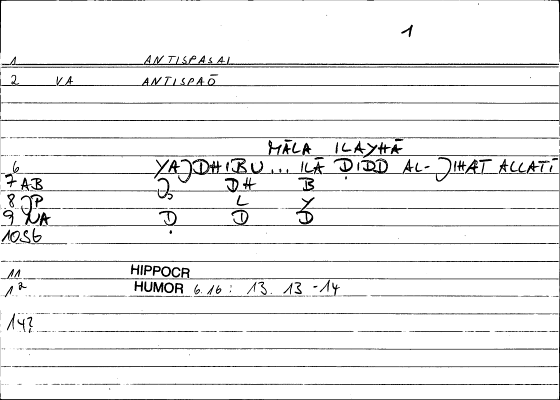 1
1 ANTISPASAI
2 VA ANTISPAŌ
MĀLA ILAYHĀ
6 YAJDHIBU... ILĀ ḌIDD AL-JIHAT ALLATĪ
7 AB J DH B
8 JP L Y
9 NA Ḍ D D
10 S6
11 HIPPOCR
12 HUMOR 6.16: 13. 13-14
14?